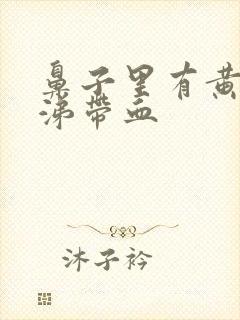 鼻子里有黄
涕带血
沐子衿